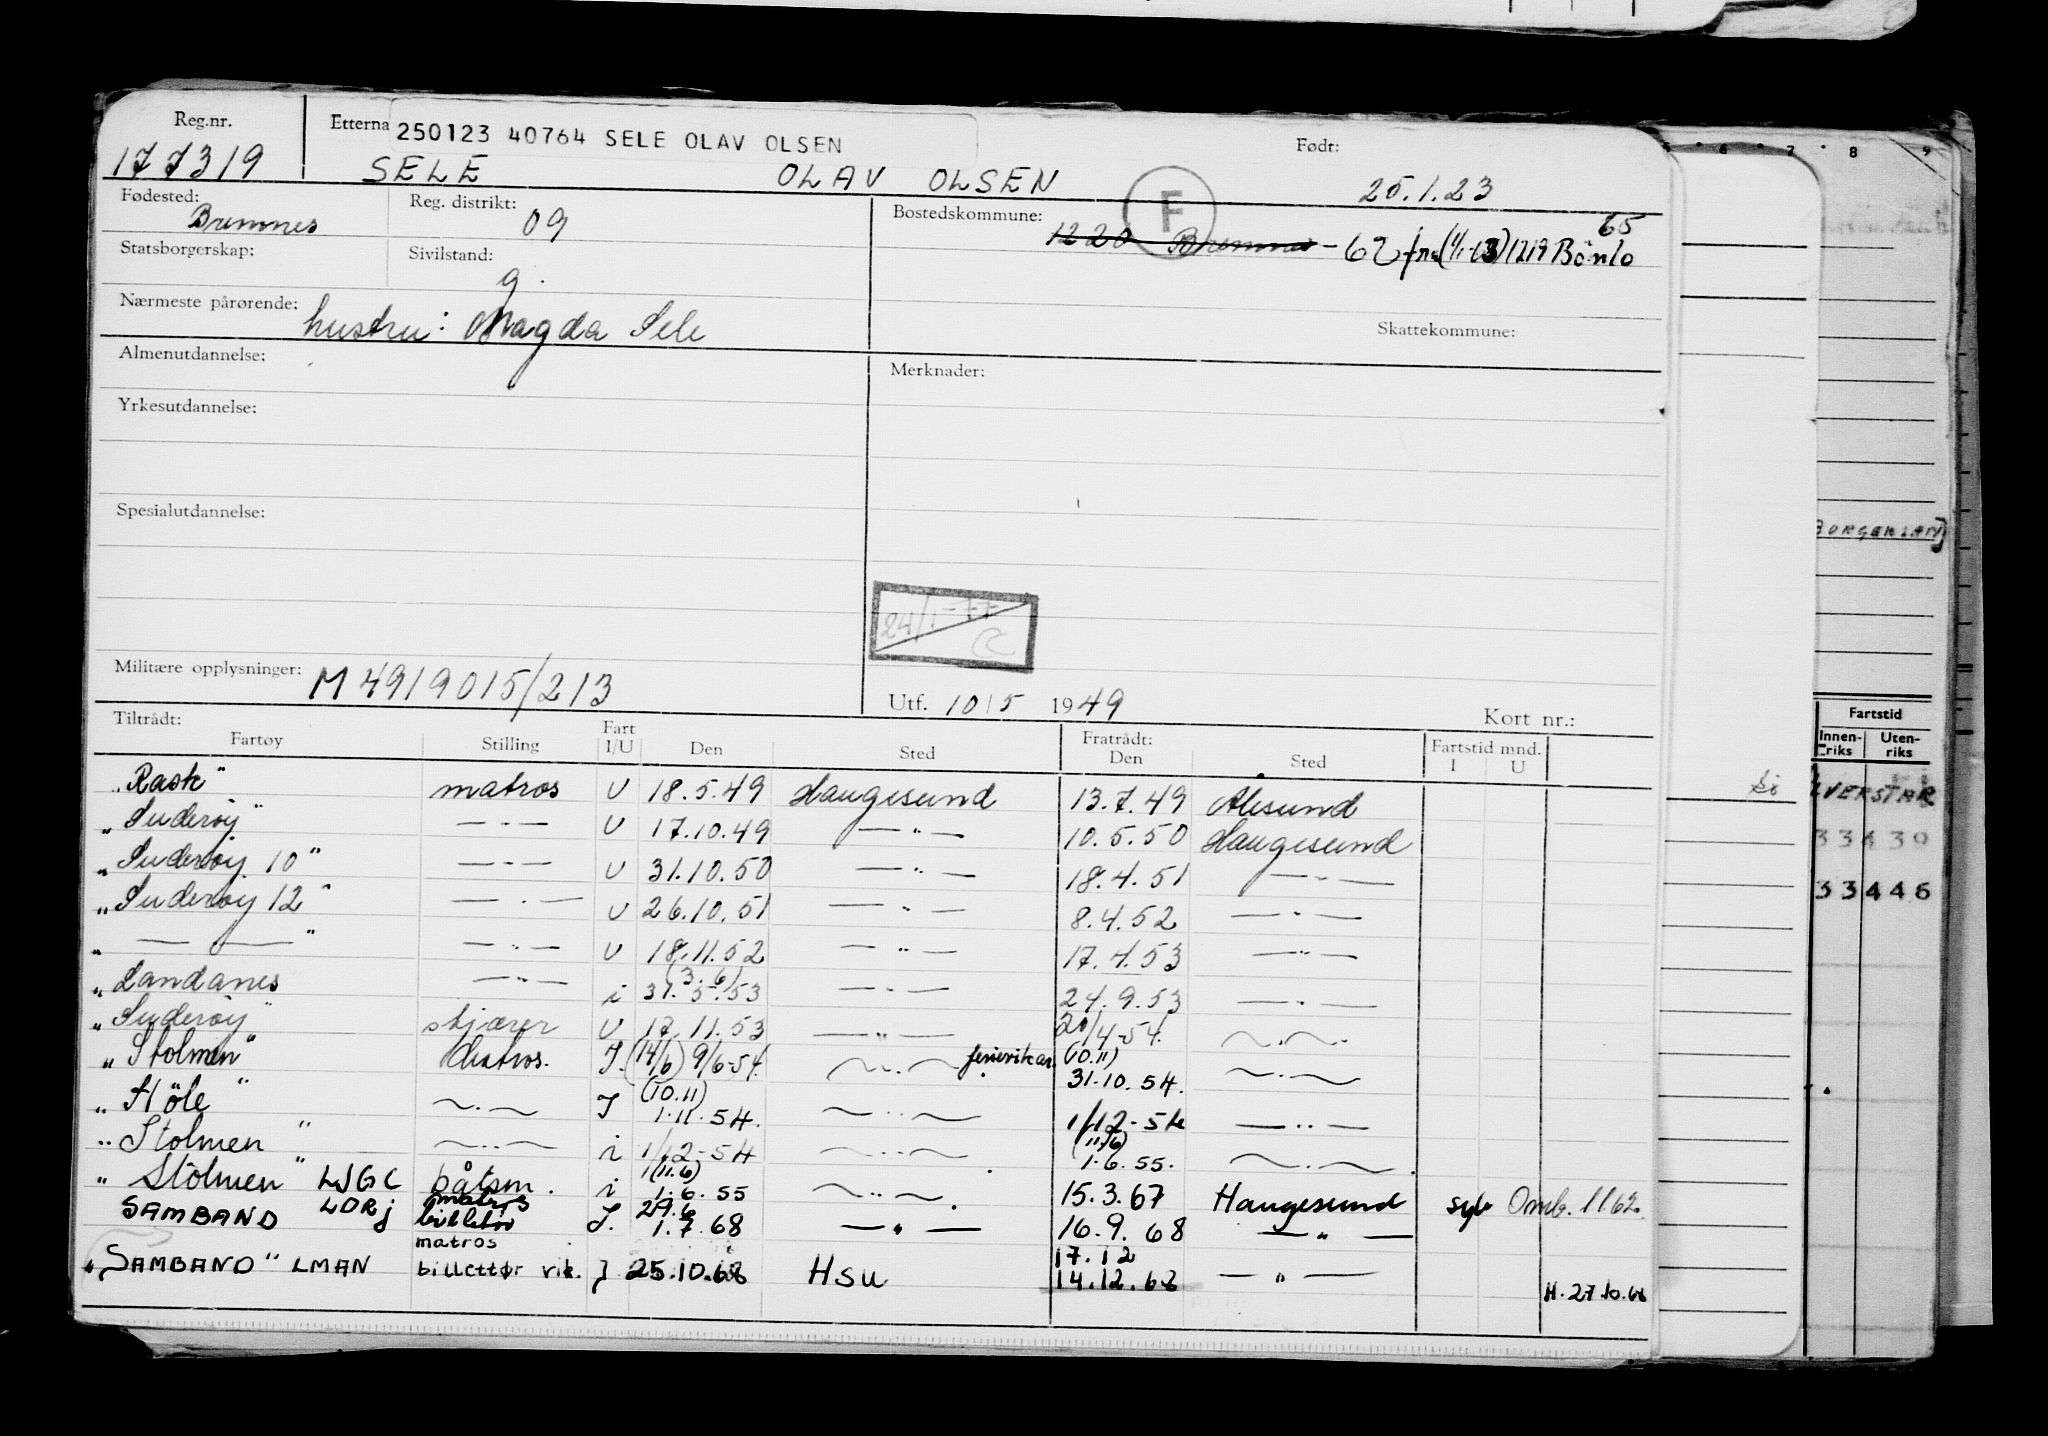 Reg.nr. Etterna 250123 40764 SELE OLAV OLSEN Født:
177319 SELE OLAV OLSEN 25.1.23
Fødested: Bremnes Reg. distrikt: 09 Bostedskommune: F 65
1220 Bremnes - 62 fra (1/1-63) 1219 Bömlo
Statsborgerskap: Sivilstand: g.
Nærmeste pårørende: hustru: Magda Sele Skattekommune:
Almenutdannelse: Merknader:
Yrkesutdannelse:
Spesialutdannelse:
24/1-77
Militære opplysninger: M 4919015/213 Utf. 10/5 1949 Kort nr.:
Tiltrådt: Fratrådt:
Fartøy Stilling Fart I/U Den Sted Den Sted Fartstid mnd. I U
"Rask" matros U 18.5.49 Haugesund 13.7.49 Ålesund
"Suderøy" — " — U 17.10.49 — " — 10.5.50 Haugesund
"Suderøy 10" — " — U 31.10.50 — " — 18.4.51 — " —
"Suderøy 12" — " — U 26.10.51 — " — 8.4.52 — " —
" — " — " — " — U 18.11.52 — " — 17.4.53 — " —
"Sandanes — " — i (3.6) 31.5.53 — " — 24.9.53 — " —
"Suderøy" U 17.11.53 — " — 20/4-54. — " —
"Stolmen" Matros. I. (14/6) 9/6-54. — " — ferievikar. (10.11) 31.10.54. — " —
"Höle" — " — I (10.11) 1.11.54. — " — 1/12-54 — " —
"Stolmen" — " — i 1/12-54 — " — (11.6) 1.6.55. — " —
"Stolmen" LJGC båtsm. i (11.6) 1.6.55 — " — 15.3.67 Haugesund Omb. 1162.
SAMBAND LDRJ matros billettør I. 29.6 1.7.68 — " — 16.9.68 — " —
"SAMBAND" LMAN matros billettør vik. I 25.10.68 HSU 17.12 14.12.68 — " — H. 27.10.68
5 6 7 8 9
BORGERLAND
Fartstid
Innen-riks Uten-riks
33439
33446